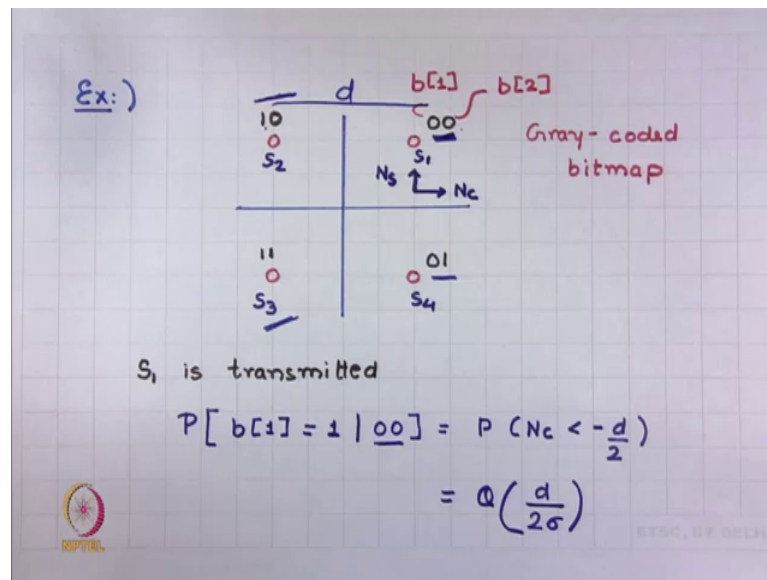 Ex:)
d
b[1]
b[2]
10
00
S2
S1
Gray-coded
bitmap
Ns
Nc
11
01
S3
S4
S1 is transmitted
P[b[1] = 1 | 00] = P(Nc < -d/2)
= Q(d/2σ)
NPTEL
ETSC, IIT DELHI